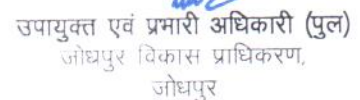 उपायुक्त एवं प्रभारी अधिकारी (पुल)
जोधपुर विकास प्राधिकरण,
जोधपुर